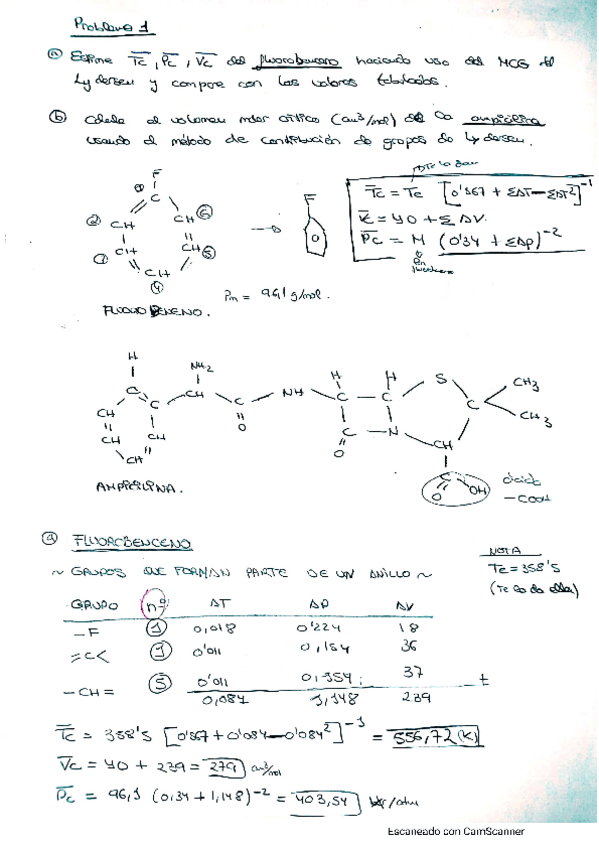 Problema 1
a) Estime Tc, Pc, Vc del fluorobenceno haciendo uso del MCG de
Lydersen y compare con los valores tabulados.
b) Calcule el volumen molar crítico (cm³/mol) de la ampicilina
usando el método de contribución de grupos de Lydersen.
Tc = Te [0'567 + ΣΔT - ΣΔT²]⁻¹
Vc = 40 + Σ ΔV
Pc = M (0'34 + ΣΔp)⁻²
Pm
F
① C
② CH
CH ⑥
CH ⑤
CH
CH
④
F
Pm = 96,1 g/mol.
FLUOROBENCENO.
H
NH2
C
C
CH
CH
CH
CH
CH
C
O
NH
H
H
C
C
S
C
CH3
CH3
C
N
O
CH
C
O
OH
ácido
-COOH
AMPICILINA.
a) FLUOROBENCENO
~ GRUPOS QUE FORMAN PARTE DE UN ANILLO ~
NOTA
Te = 358'5
(Te lo da ella)
GRUPO nº ΔT ΔP ΔV
-F 1 0,018 0'224 18
=C< 1 0'011 0,154 36
-CH= 5 0'011 0,154 37 +
0,084 1,148 239
Tc = 358'5 [0'567 + 0'084 - 0'084²]⁻¹ = 556,72 (K)
Vc = 40 + 239 = 279 cm³/mol
Pc = 96,1 (0,34 + 1,148)⁻² = 403,54 /atm
Escaneado con CamScanner